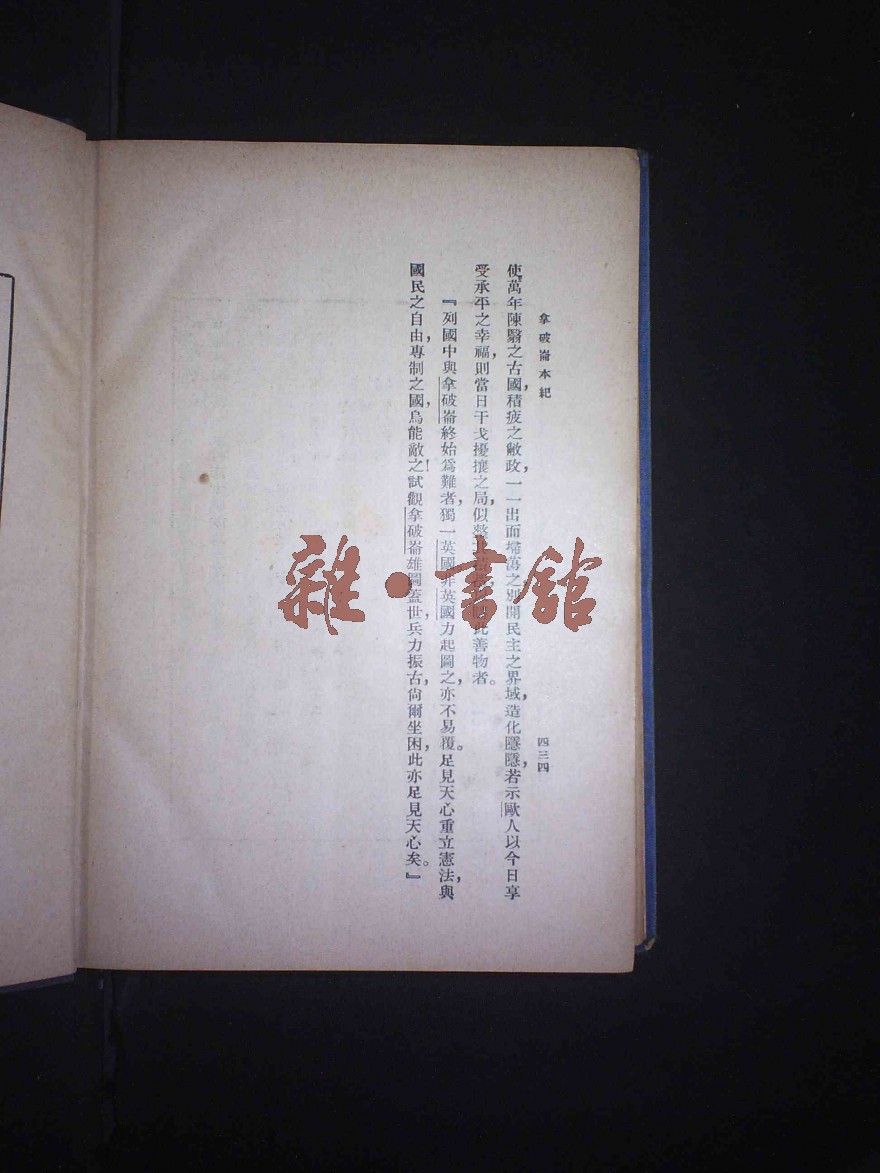 拿破崙本紀
四三四
使萬年陳翳之古國，積疲之敝政，一一出而埽蕩之，別開民主之界域，造化隱隱，若示歐人以今日享
受承平之幸福，則當日干戈擾攘之局，似整此善物者。
『列國中與拿破崙終始爲難者，獨一英國，非英國力起圖之，亦不易覆。足見天心重立憲法，與
國民之自由，專制之國，烏能敵之！試觀拿破崙雄圖蓋世，兵力振古，尙爾坐困，此亦足見天心矣。』
雜·書館